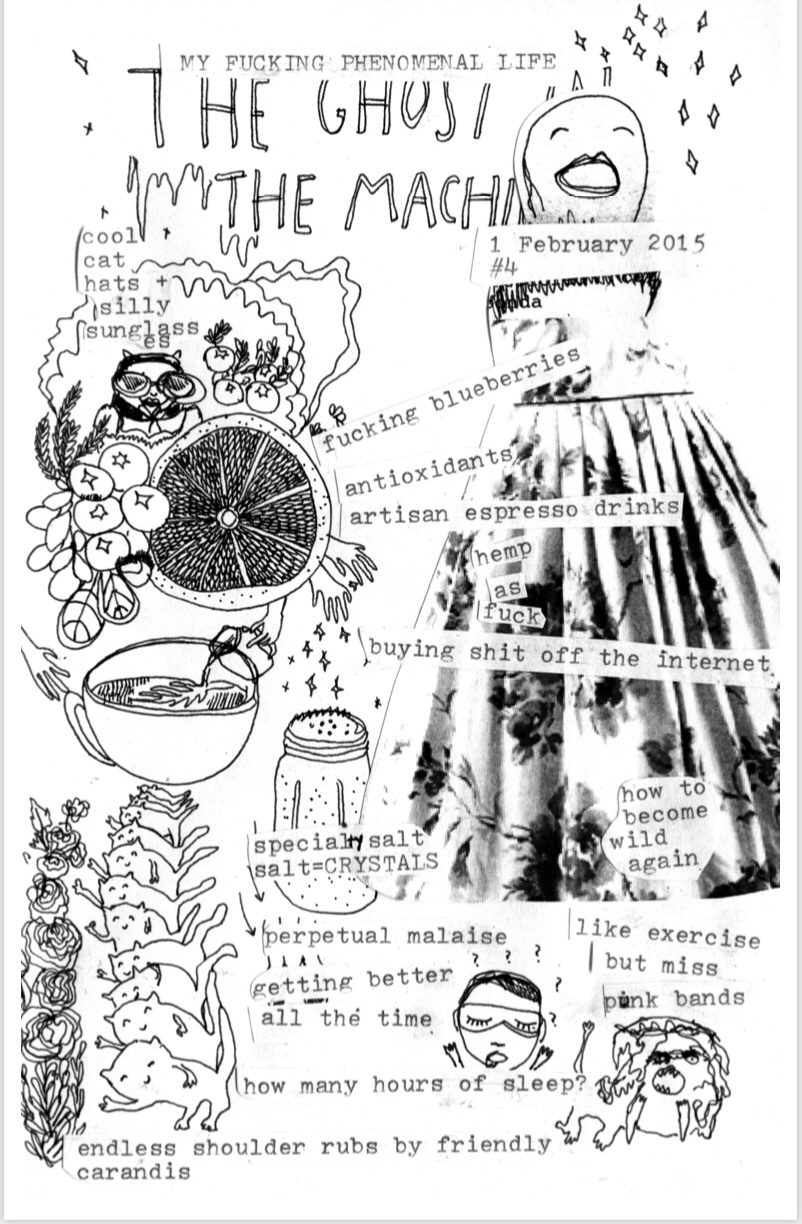 MY FUCKING PHENOMENAL LIFE
THE GHOST IN
THE MACHIN
1 February 2015
#4
cool
cat
hats +
silly
sunglass
es
fucking blueberries
antioxidants
artisan espresso drinks
hemp
as
fuck
buying shit off the internet
how to
become
wild
again
specialty salt
salt=CRYSTALS
perpetual malaise
getting better
all the time
like exercise
but miss
punk bands
? ? ? ? ?
how many hours of sleep?
endless shoulder rubs by friendly
carandis